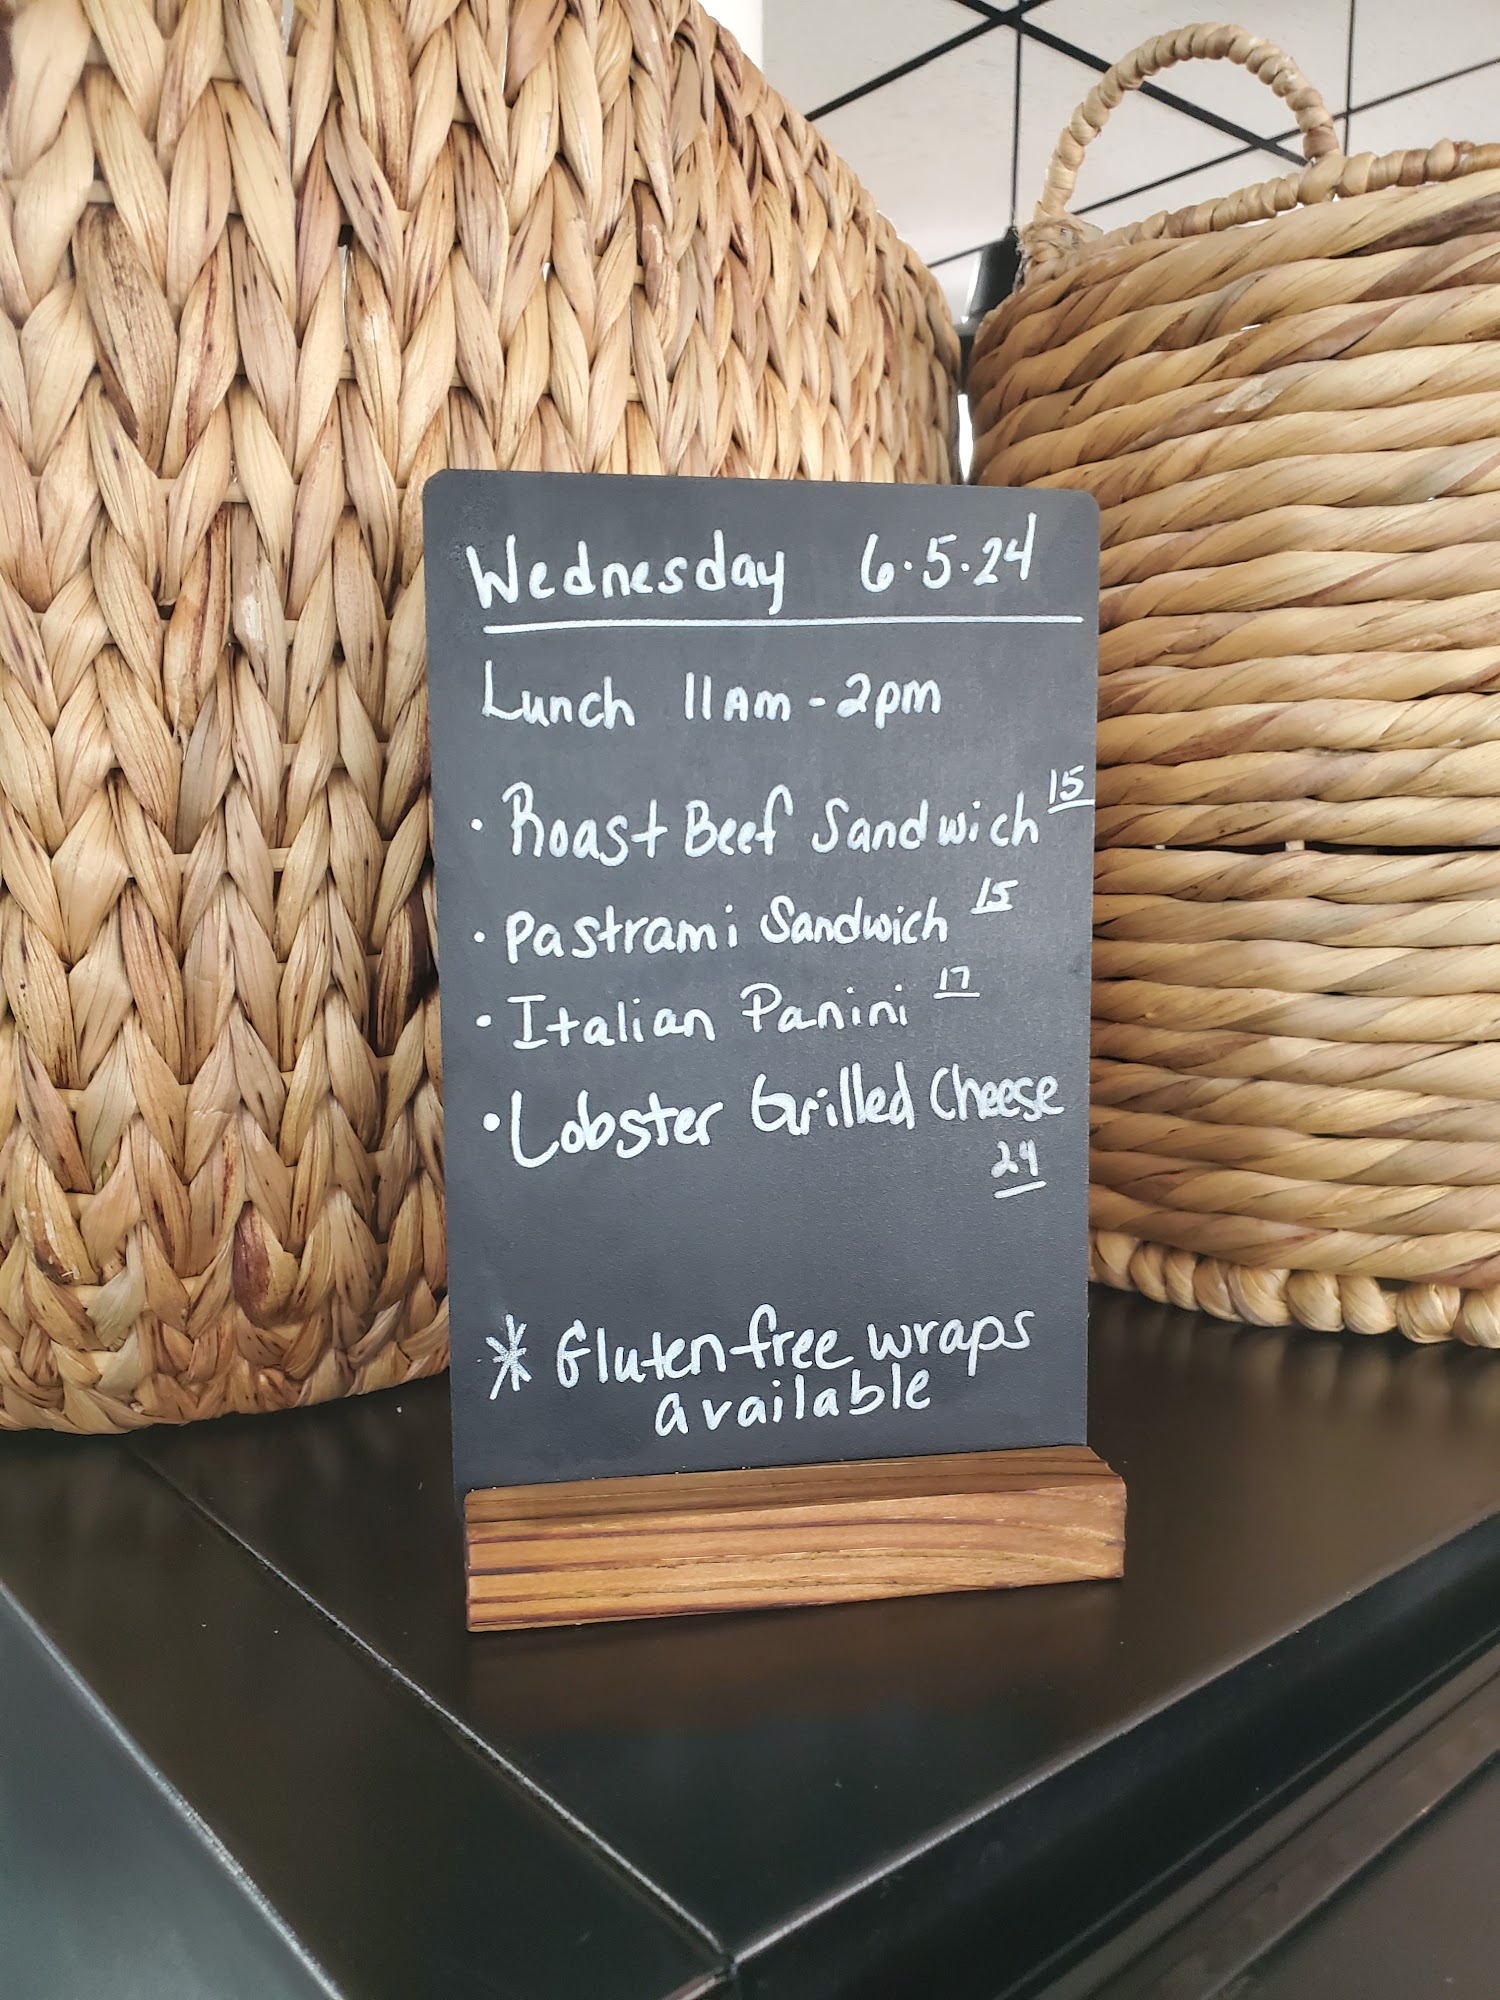 Wednesday 6.5.24
Lunch 11am - 2pm
· Roast Beef Sandwich 15
· Pastrami Sandwich 15
· Italian Panini 17
· Lobster Grilled Cheese
24
* Gluten free wraps
available